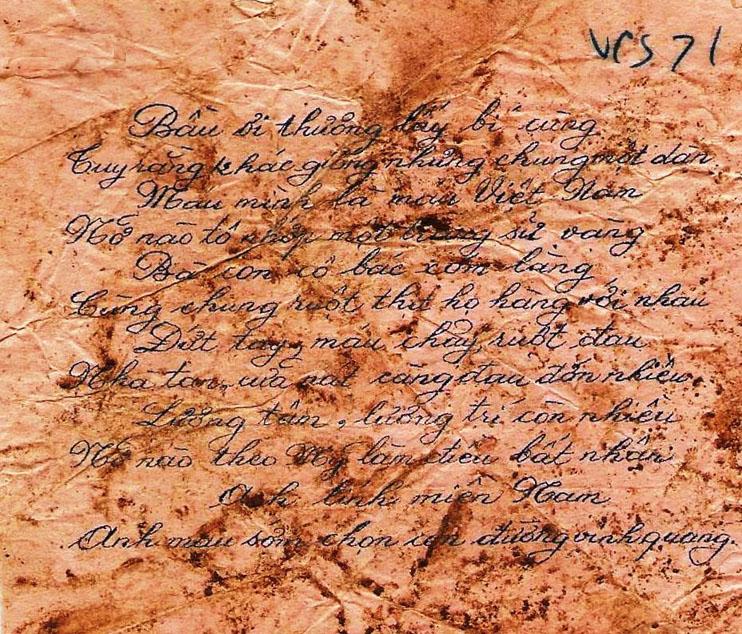 VCS 71
Bầu ơi thương lấy bí cùng
Tuy rằng khác giống nhưng chung một dàn
Máu mình là máu Việt Nam
Nỡ nào tô một trang sử vàng
Bà con cô bác xóm làng
Cùng chung ruột thịt họ hàng với nhau
Đứt tay, máu chảy, ruột đau
Nhà tan, cửa nát càng đau đớn nhiều.
Lương tâm, lương tri còn nhiều
Nỡ nào theo Mỹ làm điều bất nhân
Anh lính miền Nam
Anh mau sớm chọn con đường vinh quang.